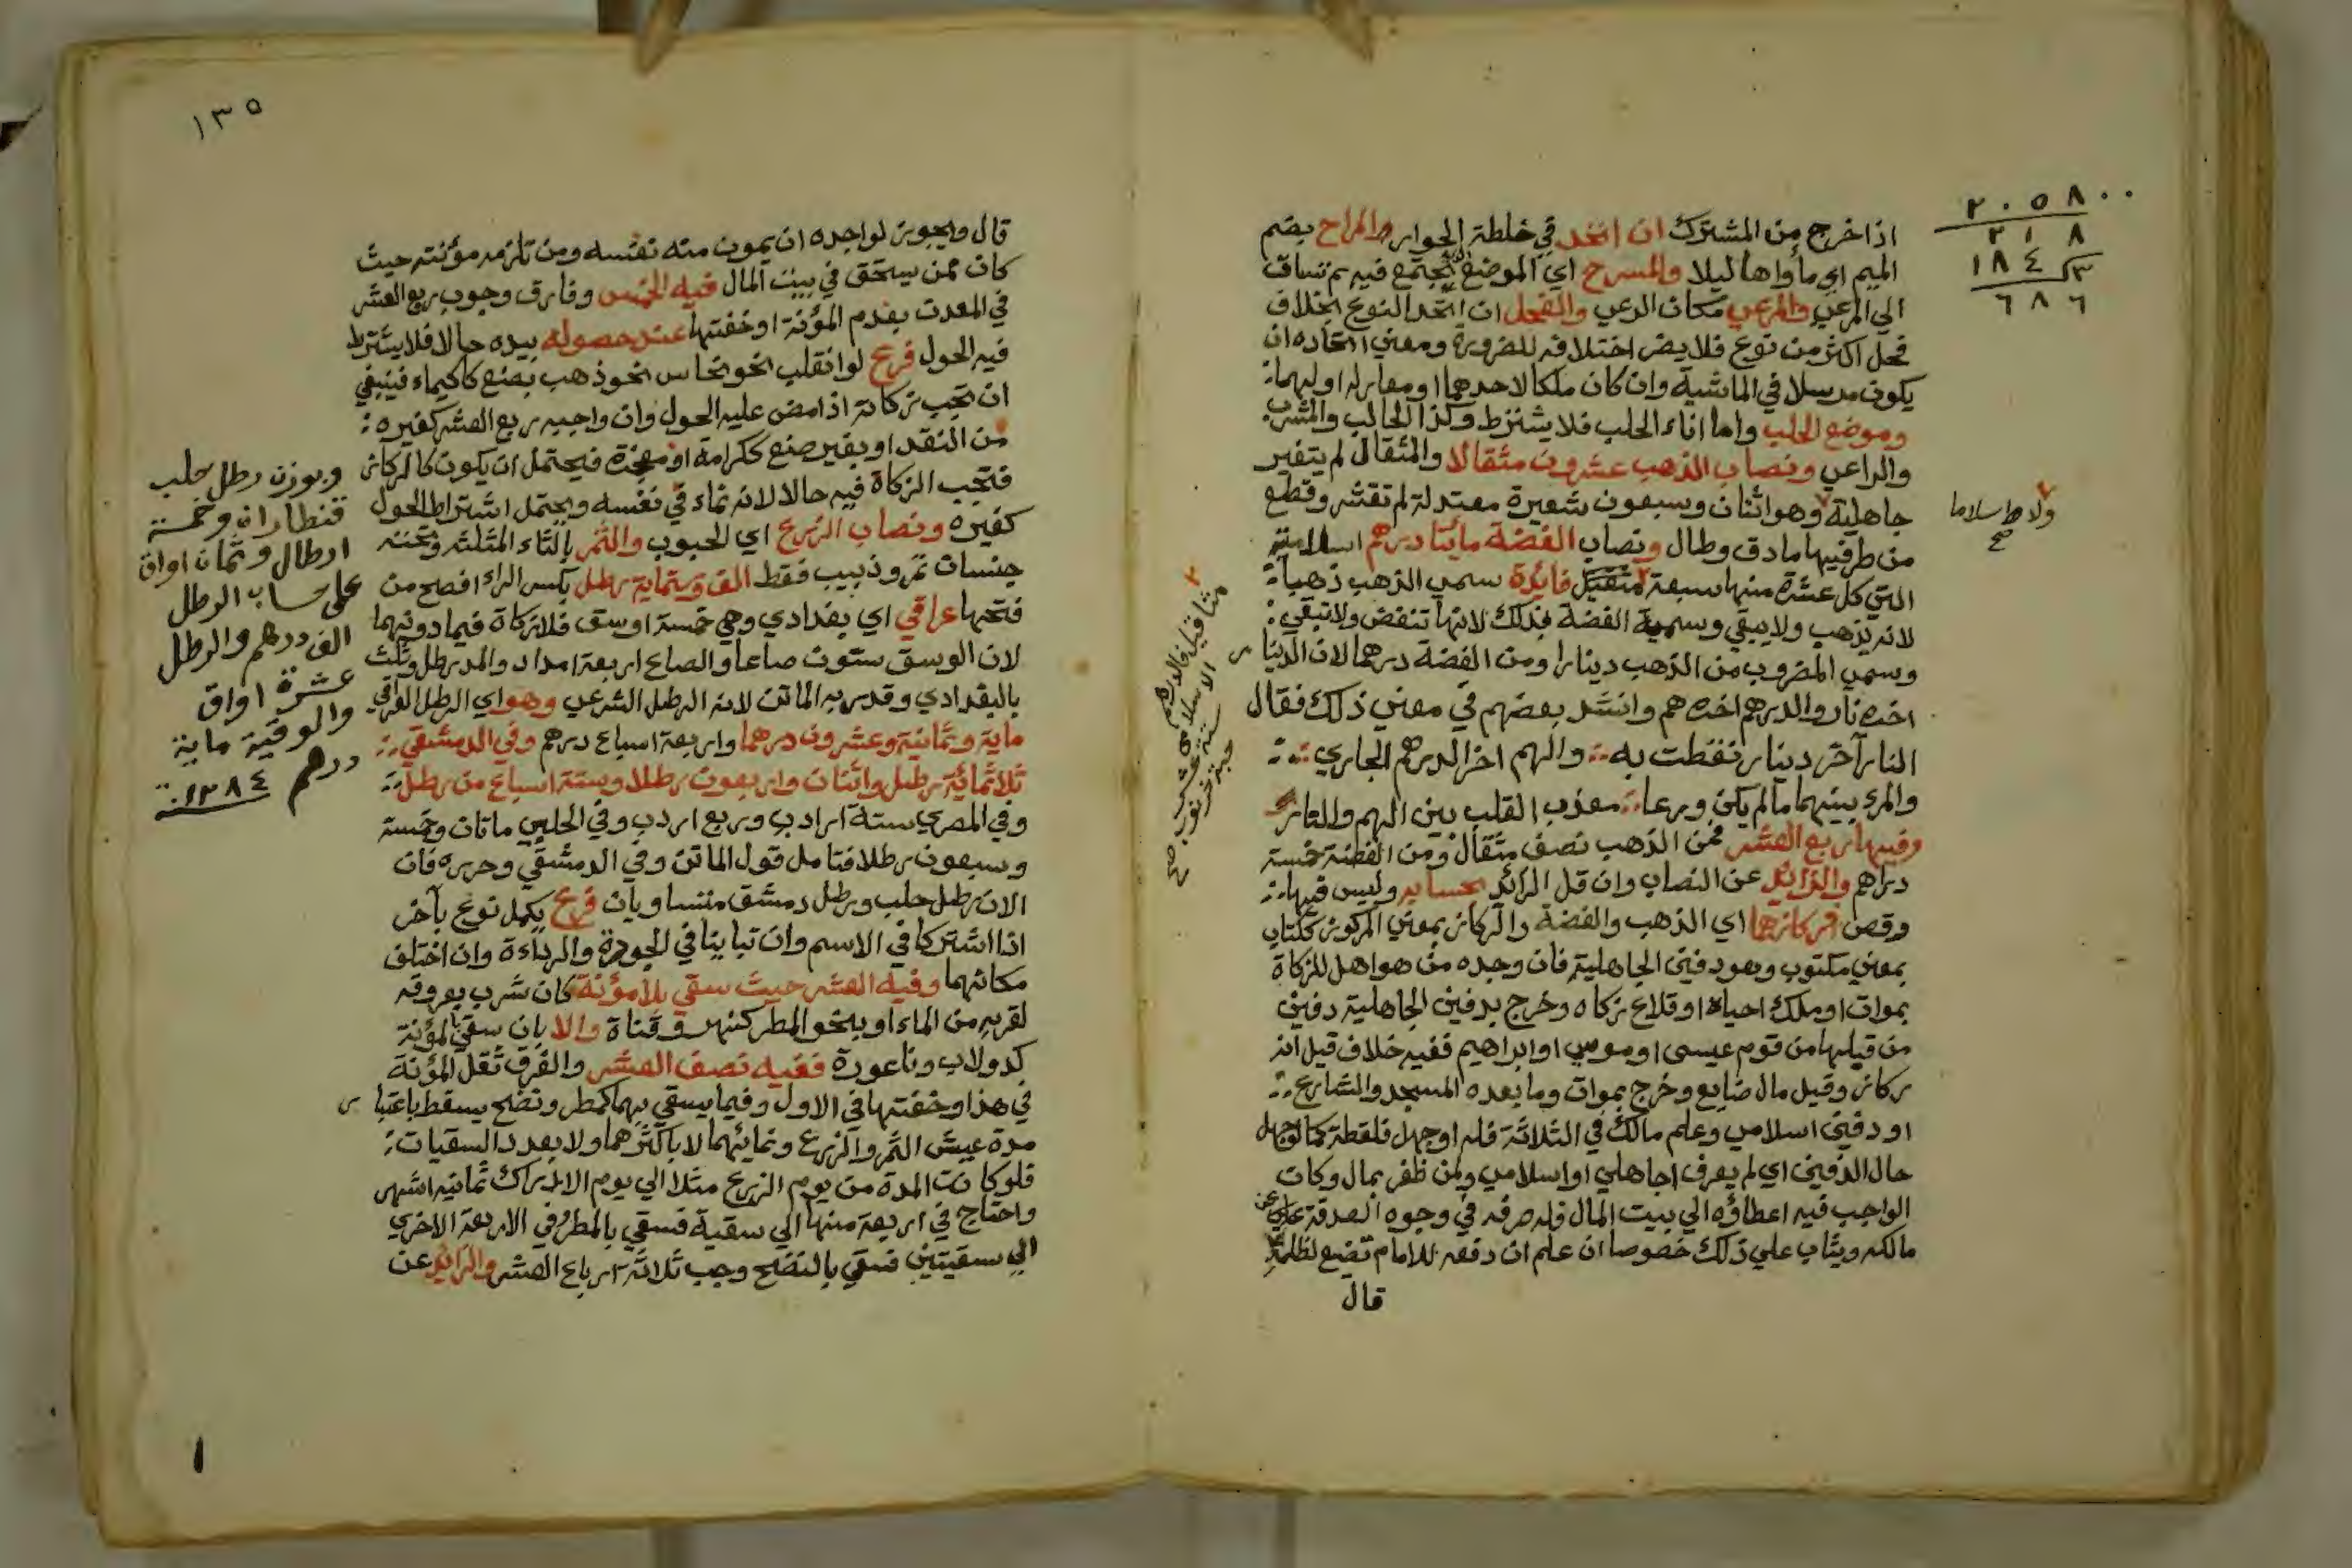 اذا خرج من المشترك ان اتحد في خلطة الجوار والمراح بضم
الميم اي مأواها ليلا والمسرح اي الموضع يجتمع فيه ثم تساق
الى المرعى والمرعي مكان الرعي والفحل ان اتحد النوع بخلاف
فحل اكثر من نوع فلا يضر اختلافه للضرورة ومعني اتحاده ان
يكون مرسلا في الماشية وان كان ملكا لاحدهما او معار له او لهما
وموضع الحلب واما اناء الحلب فلا يشترط وكذا الحالب والمشرب
والراعي ونصاب الذهب عشرون مثقالا والمثقال لم يتغير
جاهلية وهو اثنان وسبعون شعيرة معتدلة لم تقشر وقطع
من طرفيها ما دق وطال ونصاب الفضة مائتا درهم اسلامية
التي كل عشرة منها سبعة مثاقيل فائدة سمي الذهب ذهبا
لانه يذهب ولا يبقي وسمية الفضة بذلك لانها تنفض ولا تبقي
وسمي المضروب من الذهب دينارا ومن الفضة درهما لان الدينار
اخره نار والدرهم اخره هم وانشد بعضهم في معني ذلك فقال
النار آخر دينار نفطت به والهم اخر الدرهم الجاري
والمرء بينهما ما لم يكن ورعا معذب القلب بين الهم والنار
وفيها ربع العشر فمن الذهب نصف مثقال ومن الفضة خمسة
دراهم والزائد عن النصاب وان قل الزائد بحسابه وليس فيها
وقص وركازهما اي الذهب والفضة والركاز بمعني المركوز ككتاب
بمعني مكتوب وهو دفين الجاهلية فان وجده من هو اهل للزكاة
بموات او ملك احياه او قلاع زكاه وخرج بدفين الجاهلية دفين
من قبلها من قوم عيسى او موسي او ابراهيم ففيه خلاف قيل انه
ركاز وقيل مال ضايع وخرج بموات وما بعده المسجد والشارع
او دفين اسلامي وعلم مالك في الثلاثة فله او جهل فلقطة كما لو جهل
حال الدفين اي لم يعرف اجاهلي او اسلامي ولمن ظفر بمال وكان
الواجب فيه اعطاؤه الي بيت المال فله صرفه في وجوه الصدقة علي
مالكه ويثاب علي ذلك خصوصا ان علم ان دفعه للامام تضيع لظلمه
قال
٢٠٥٨٠٠
٢١٨
١٨٤٣
٦٨٦
صح
مثاقيل فالدرهم
الاسلامي
ستة عشر
حبة خرنوب صح
١٣٥
قال ويجوز لواجده ان يمون منه نفسه ومن تلزمه مؤنته حيث
كان ممن يستحق في بيت المال فيه الخمس وفارق وجوب ربع العشر
في المعدن بعدم المؤنة او خفتها عند حصوله بيده حالا فلا يشترط
فيه الحول فرع لو انقلب نحو نحاس نحو ذهب بصنع كاكيماء فينبغي
ان تجب زكاته اذا مضى عليه الحول وان واجبه ربع العشر كغيره
من النقد او بغير صنع ككرامة او معجزة فيحتمل ان يكون كالركاز
فتجب الزكاة فيه حالا لانه نماء في نفسه ويحتمل اشتراط الحول
كغيره ونصاب الزرع اي الحبوب والثمر بالثاء المثلثة وتحته
جنسان تمر وزبيب فقط الف وستماية رطل بكسر الراء افصح من
فتحها عراقي اي بغدادي وهي خمسة اوسق فلا زكاة فيما دونها
لان الوسق ستون صاعا والصاع اربعة امداد والمد رطل وثلث
بالبغدادي وقدر به الماتن لانه الرطل الشرعي وهو اي الرطل العراقي
ماية وثمانية وعشرون درهما واربعة اسباع درهم وفي الدمشقي
ثلاثمائة رطل واثنان واربعون رطلا وستة اسباع من رطل
وفي المصري ستة ارادب وربع اردب وفي الحلبي ماتان وخمسة
وسبعون رطلا فتامل قول الماتن وفي الدمشقي وحرره فان
الان رطل حلب ورطل دمشق متساويان فرع يكمل نوع بآخر
اذا اشتركا في الاسم وان تباينا في الجودة والرداءة وان اختلف
مكانهما وفيه العشر حيث سقي بلا مؤنة كان شرب بعروقه
لقربه من الماء او بنحو المطر كنهر وقناة والا بان سقي بمؤنة
كدولاب وناعورة ففيه نصف العشر والفرق ثقل المؤنة
في هذا وخفتها في الاول وفيما يسقي بهما كمطر ونضح يسقط باعتبار
مدة عيش الثمر والزرع ونمائهما لا باكثرهما ولا بعدد السقيات
فلو كانت المدة من يوم الزرع مثلا الي يوم الادراك ثمانية اشهر
واحتاج في اربعة منها الي سقية فسقي بالمطر وفي الاربعة الاخري
الي سقيتين فسقي بالنضح وجب ثلاثة ارباع العشر والزائد عن
وبوزن رطل حلب
قنطاران وخمسة
ارطال وثمان اواق
على حساب الرطل
الف درهم والرطل
عشرة اواق
والوقية ماية
درهم ١٢٨٤
١